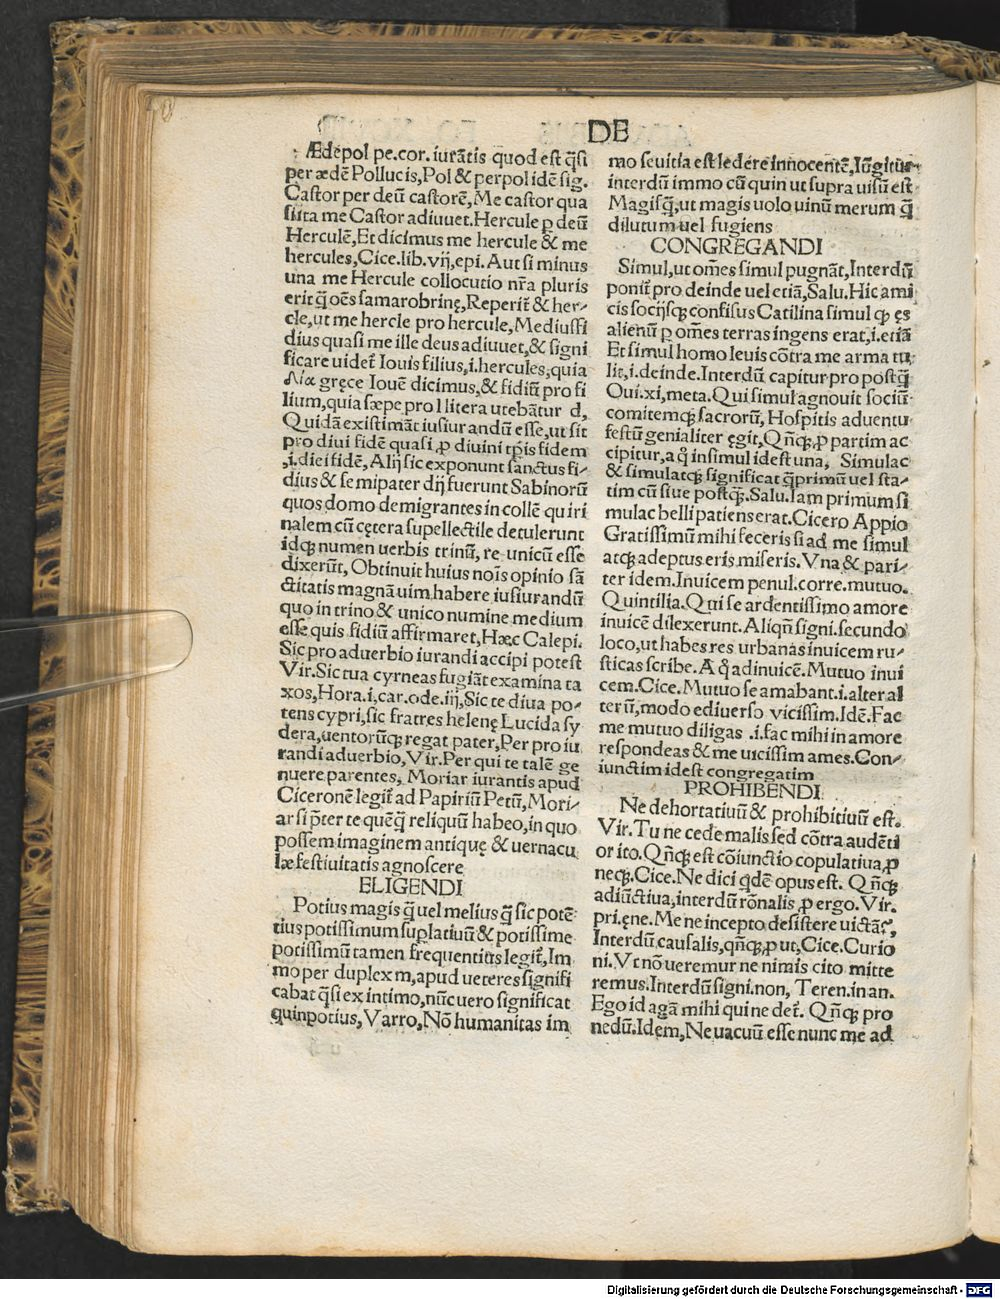 DE
Ædepol pe.cor. iurãtis quod est q̃si
per ædẽ Pollucis,Pol & perpol idẽ sig.
Castor per deũ castorẽ,Me castor qua
si ita me Castor adiuuet.Hercule ꝑ deũ
Herculẽ,Et dicimus me hercule & me
hercules,Cice.lib.vij,epi.Aut si minus
una me Hercule collocutio nr̃a pluris
erit q̃ oẽs samarobrinę,Reperit̃ & her⸗
cle,ut me hercle pro hercule,Mediussi
dius quasi me ille deus adiuuet,& signi
ficare uidet̃ Iouis filius,i.hercules,quia
Δία gręce Iouẽ dicimus,& fidiũ pro fi
lium,quia sæpe pro l litera utebãtur d,
Quidã existimãt iusiurandũ esse,ut sit
pro diui fidẽ quasi ꝓ diuini tp̃is fidem
,i.diei fidẽ,Alij sic exponunt sanctus fi⸗
dius & semipater dij fuerunt Sabinorũ
quos domo demigrantes in collẽ quiri
nalem cũ cętera supellectile detulerunt
idqꝫ numen uerbis trinũ, re unicũ esse
dixerũt, Obtinuit huius nois̃ opinio sã
ctitatis magnã uim habere iusiurandũ
quo in trino & unico numine medium
esse quis fidiũ affirmaret,Hæc Calepi.
Sic pro aduerbio iurandi accipi potest
Vir.Sic tua cyrneas fugiãt examina ta
xos,Hora.i,car.ode.iij,Sic te diua po⸗
tens cypri,sic fratres helenę Lucida sy
dera,uentorũqꝫ regat pater,Per pro iu
randi aduerbio,Vir.Per qui te talẽ ge
nuere parentes, Moriar iurantis apud
Ciceronẽ legit̃ ad Papiriũ Petũ,Mori⸗
ar si pr̃ter te quẽq̃ reliquũ habeo,in quo
possem imaginem antiquę & uernacu
læ festiuitatis agnoscere
ELIGENDI
Potius magis q̃ uel melius q̃ sic potẽ⸗
tius potissimum suplatiuũ & potissime
potissimũ tamen frequentius legit̃,Im
mo per duplex m,apud ueteres signifi
cabat q̃si ex intimo,nũc uero significat
quinpotius,Varro,Nõ humanitas im
mo seuitia est ledere innocentẽ,Iũgitur
interdũ immo cũ quin ut supra uisũ est
Magisq̃,ut magis uolo uinũ merum q̃
dilutum uel fugiens
CONGREGANDI
Simul,ut oẽs simul pugnãt,Interdũ
ponit̃ pro deinde uel etiã,Salu.Hic ami
cis socijsqꝫ confisus Catilina simul qꝫ ęs
alienũ ꝑ omẽs terras ingens erat,i.etiã
Et simul homo leuis cõtra me arma tu
lit,i.deinde.Interdũ capitur pro postq̃
Oui.xi,meta.Qui simul agnouit sociũ
comitemqꝫ sacrorũ, Hospitis aduentu
festũ genialiter ęgit,Qñqꝫ,ꝓ partim ac
cipitur,a q̃ insimul idest una, Simulac
& simulatqꝫ significat q̃primũ uel sta⸗
tim cũ siue postqꝫ.Salu.Iam primum si
mulac belli patiens erat.Cicero Appio
Gratissimũ mihi feceris si ad me simul
atqꝫ adeptus eris miseris. Vna & pari⸗
ter idem.Inuicem penul.corre.mutuo.
Quintilia.Qui se ardentissimo amore
inuicẽ dilexerunt.Aliqñ signi.secundo
loco,ut habes res urbanas inuicem ru⸗
sticas scribe. A q̃ adinuicẽ.Mutuo inui
cem.Cice.Mutuo se amabant.i.alter al
terũ,modo e diuerso vicissim.Idẽ.Fac
me mutuo diligas .i.fac mihi in amore
respondeas & me uicissim ames.Con⸗
iunctim idest congregatim
PROHIBENDI
Ne dehortatiuũ & prohibitiuũ est.
Vir.Tu ne cede malis sed cõtra audẽti
or ito.Qñqꝫ est cõiunctio copulatiua,ꝓ
neqꝫ.Cice.Ne dici qdẽ opus est. Qñqꝫ
adiũctiua,interdũ rõnalis ꝓ ergo.Vir.
pri.ęne.Me ne incepto desistere uictã,
Interdũ causalis,qñqꝫ,ꝓ ut,Cice.Curio
ni.Vt nõ ueremur ne nimis cito mitte
remus.Interdũ signi.non, Teren.in an.
Ego id agã mihi qui ne det̃. Qñqꝫ pro
nedũ.Idem,Ne uacuũ esse nunc me ad
Digitalisierung gefördert durch die Deutsche Forschungsgemeinschaft - DFG